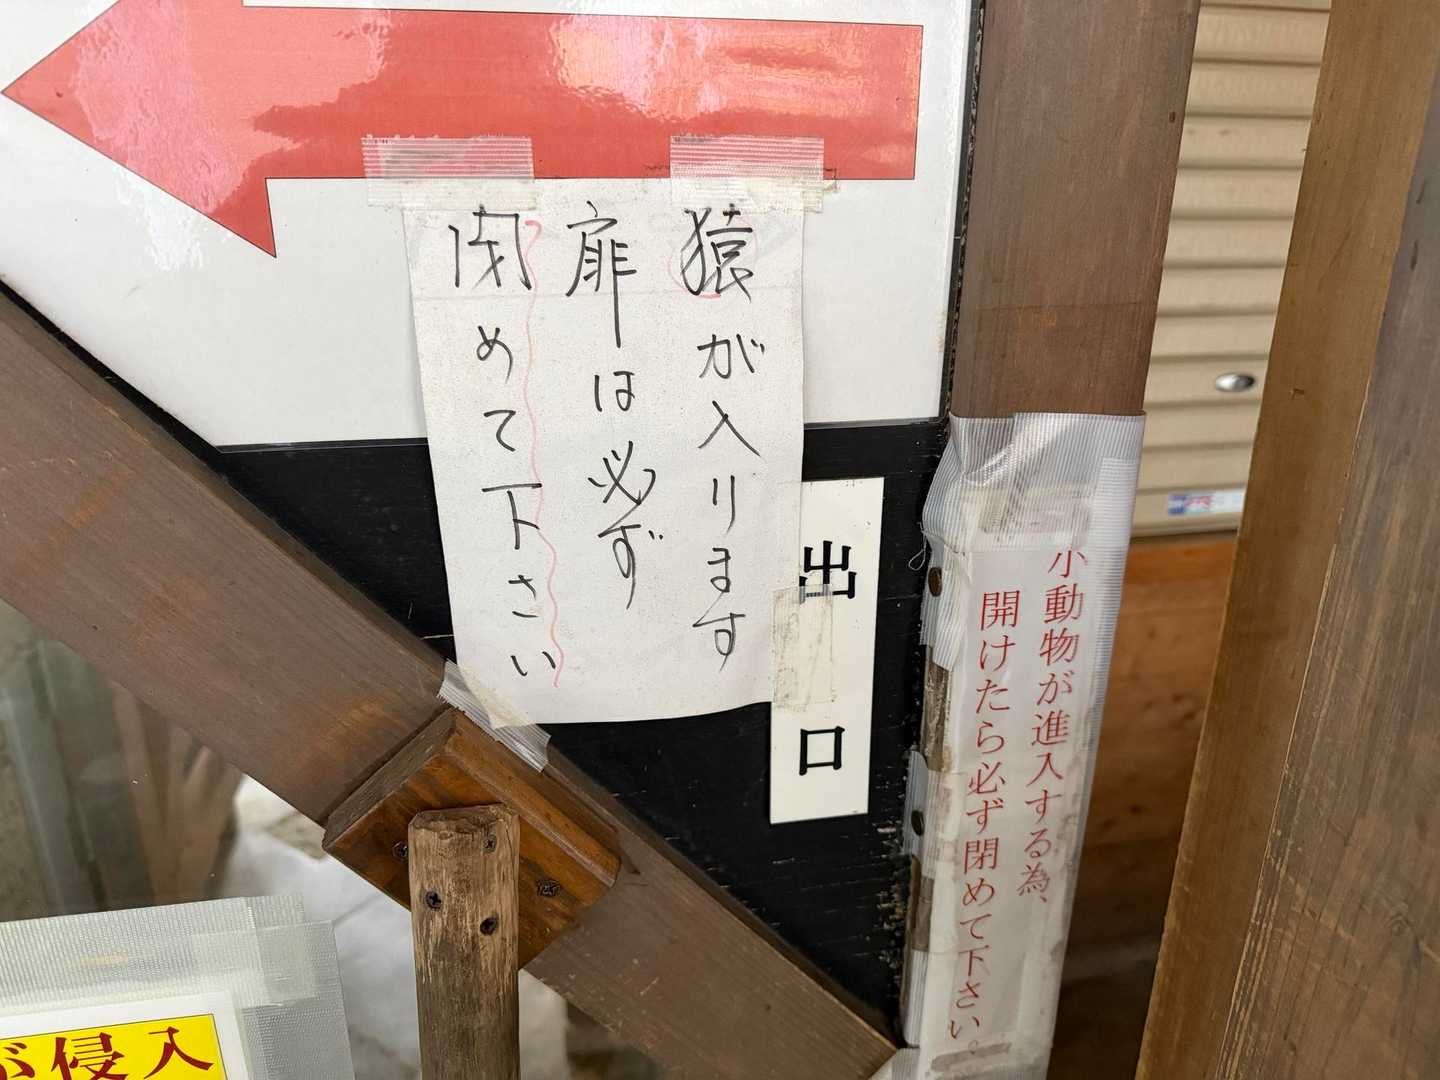 猿が入ります
扉は必ず
閉めて下さい
出口
小動物が進入する為、
開けたら必ず閉めて下さい。
が侵入